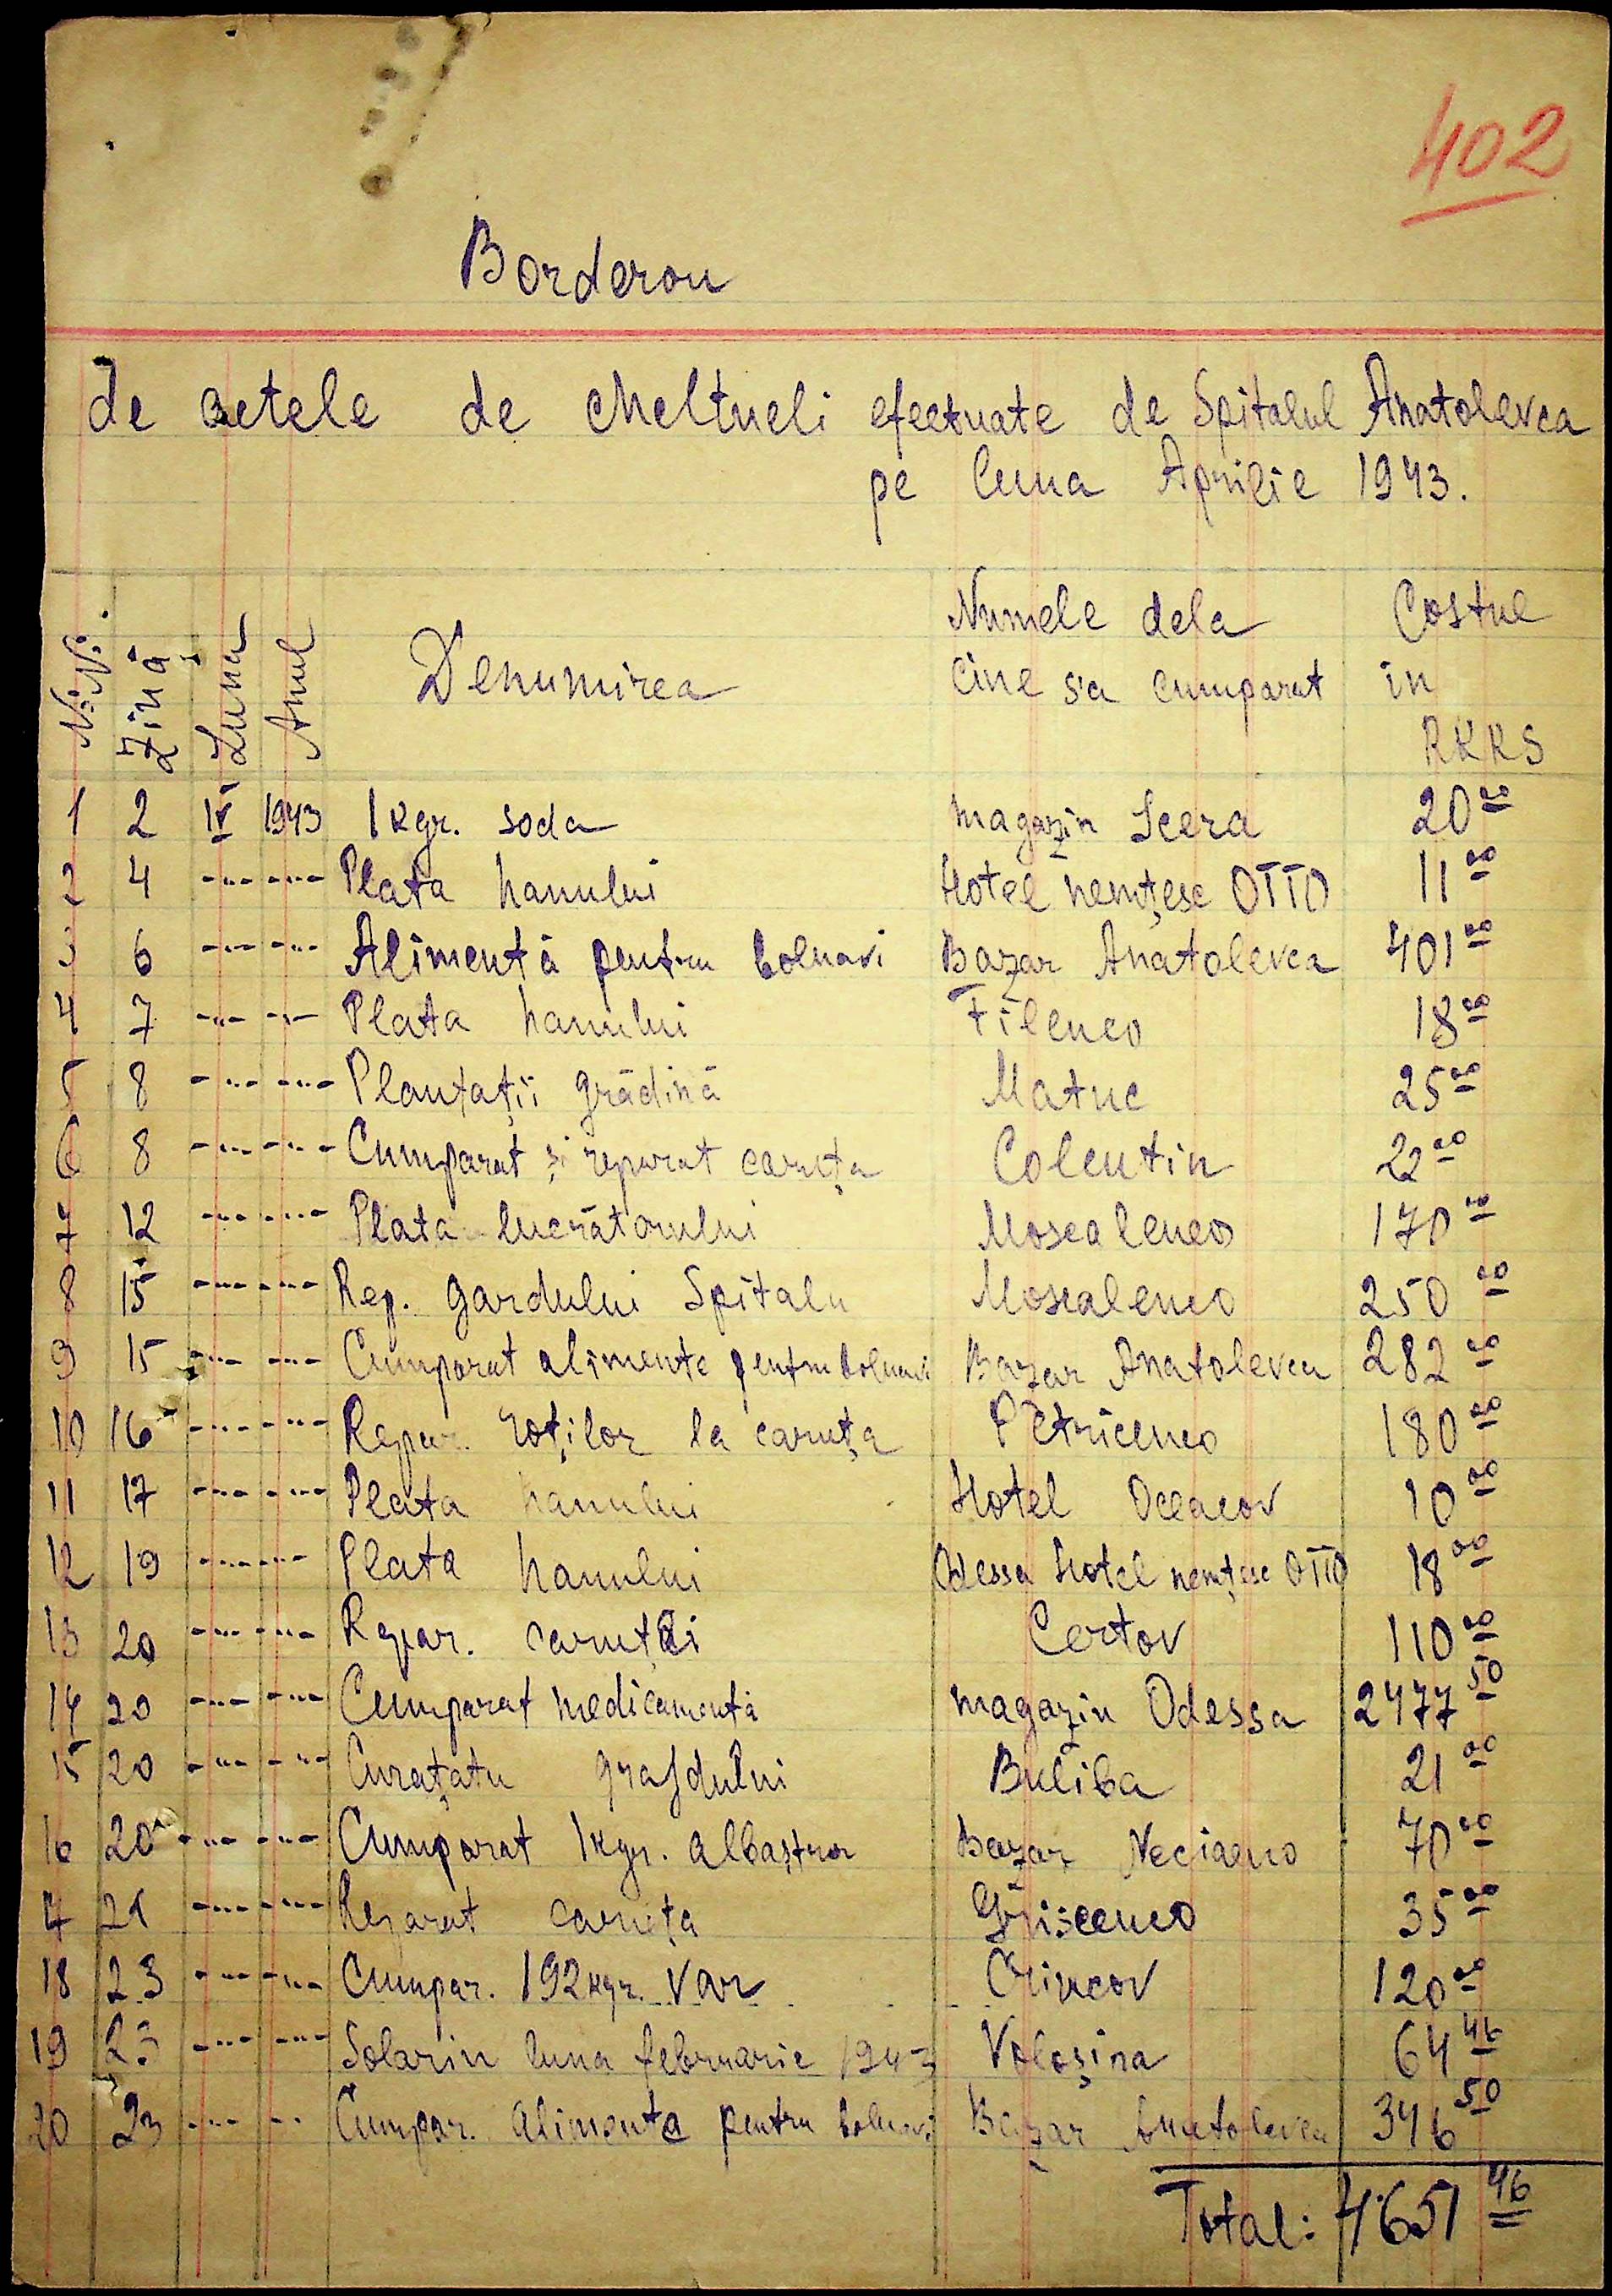 402
Borderou
de actele de cheltueli efectuate de Spitalul Anatolevca
pe luna Aprilie 1943.
N:N: Zină Luna Anul Denumirea Numele dela cine s'a cumparat Costul in RKKS
1 2 IV 1943 1 kgr. soda magazin Scera 20 00
2 4 -"- -"- Plata hanului Hotel nemțesc OTTO 11 00
3 6 -"- -"- Alimentă pentru bolnavi Bazar Anatolevca 401 00
4 7 -"- -"- Plata hanului Filenco 18 00
5 8 -"- -"- Plantații grădină Matuc 25 00
6 8 -"- -"- Cumparat și reparat caruța Colentin 22 00
7 12 -"- -"- Plata lucrătorului Moscalenco 170 00
8 15 -"- -"- Rep. gardului Spitalu Moscalenco 250 00
9 15 -"- -"- Cumparat alimente pentru bolnavi Bazar Anatolevca 282 00
10 16 -"- -"- Repar. roților la caruța Petricenco 180 00
11 17 -"- -"- Plata hanului Hotel Oceacov 10 00
12 19 -"- -"- Plata hanului Odessa Hotel nemțesc OTTO 18 00
13 20 -"- -"- Repar. caruței Certov 110 00
14 20 -"- -"- Cumparat medicamentă magazin Odessa 2477 50
15 20 -"- -"- Curațatu grajdului Buliba 21 00
16 20 -"- -"- Cumparat 1 kgr. albaștror Bazar 70 00
17 21 -"- -"- Reparat caruța Grișcenco 35 00
18 23 -"- -"- Cumpar. 192 kgr. var Crincov 120 00
19 23 -"- -"- Solarin luna februarie 1943 Voloșina 64 46
20 23 -"- -"- Cumpar. alimenta pentru bolnavi Bazar Anatolevca 346 50
Total: 4651 46